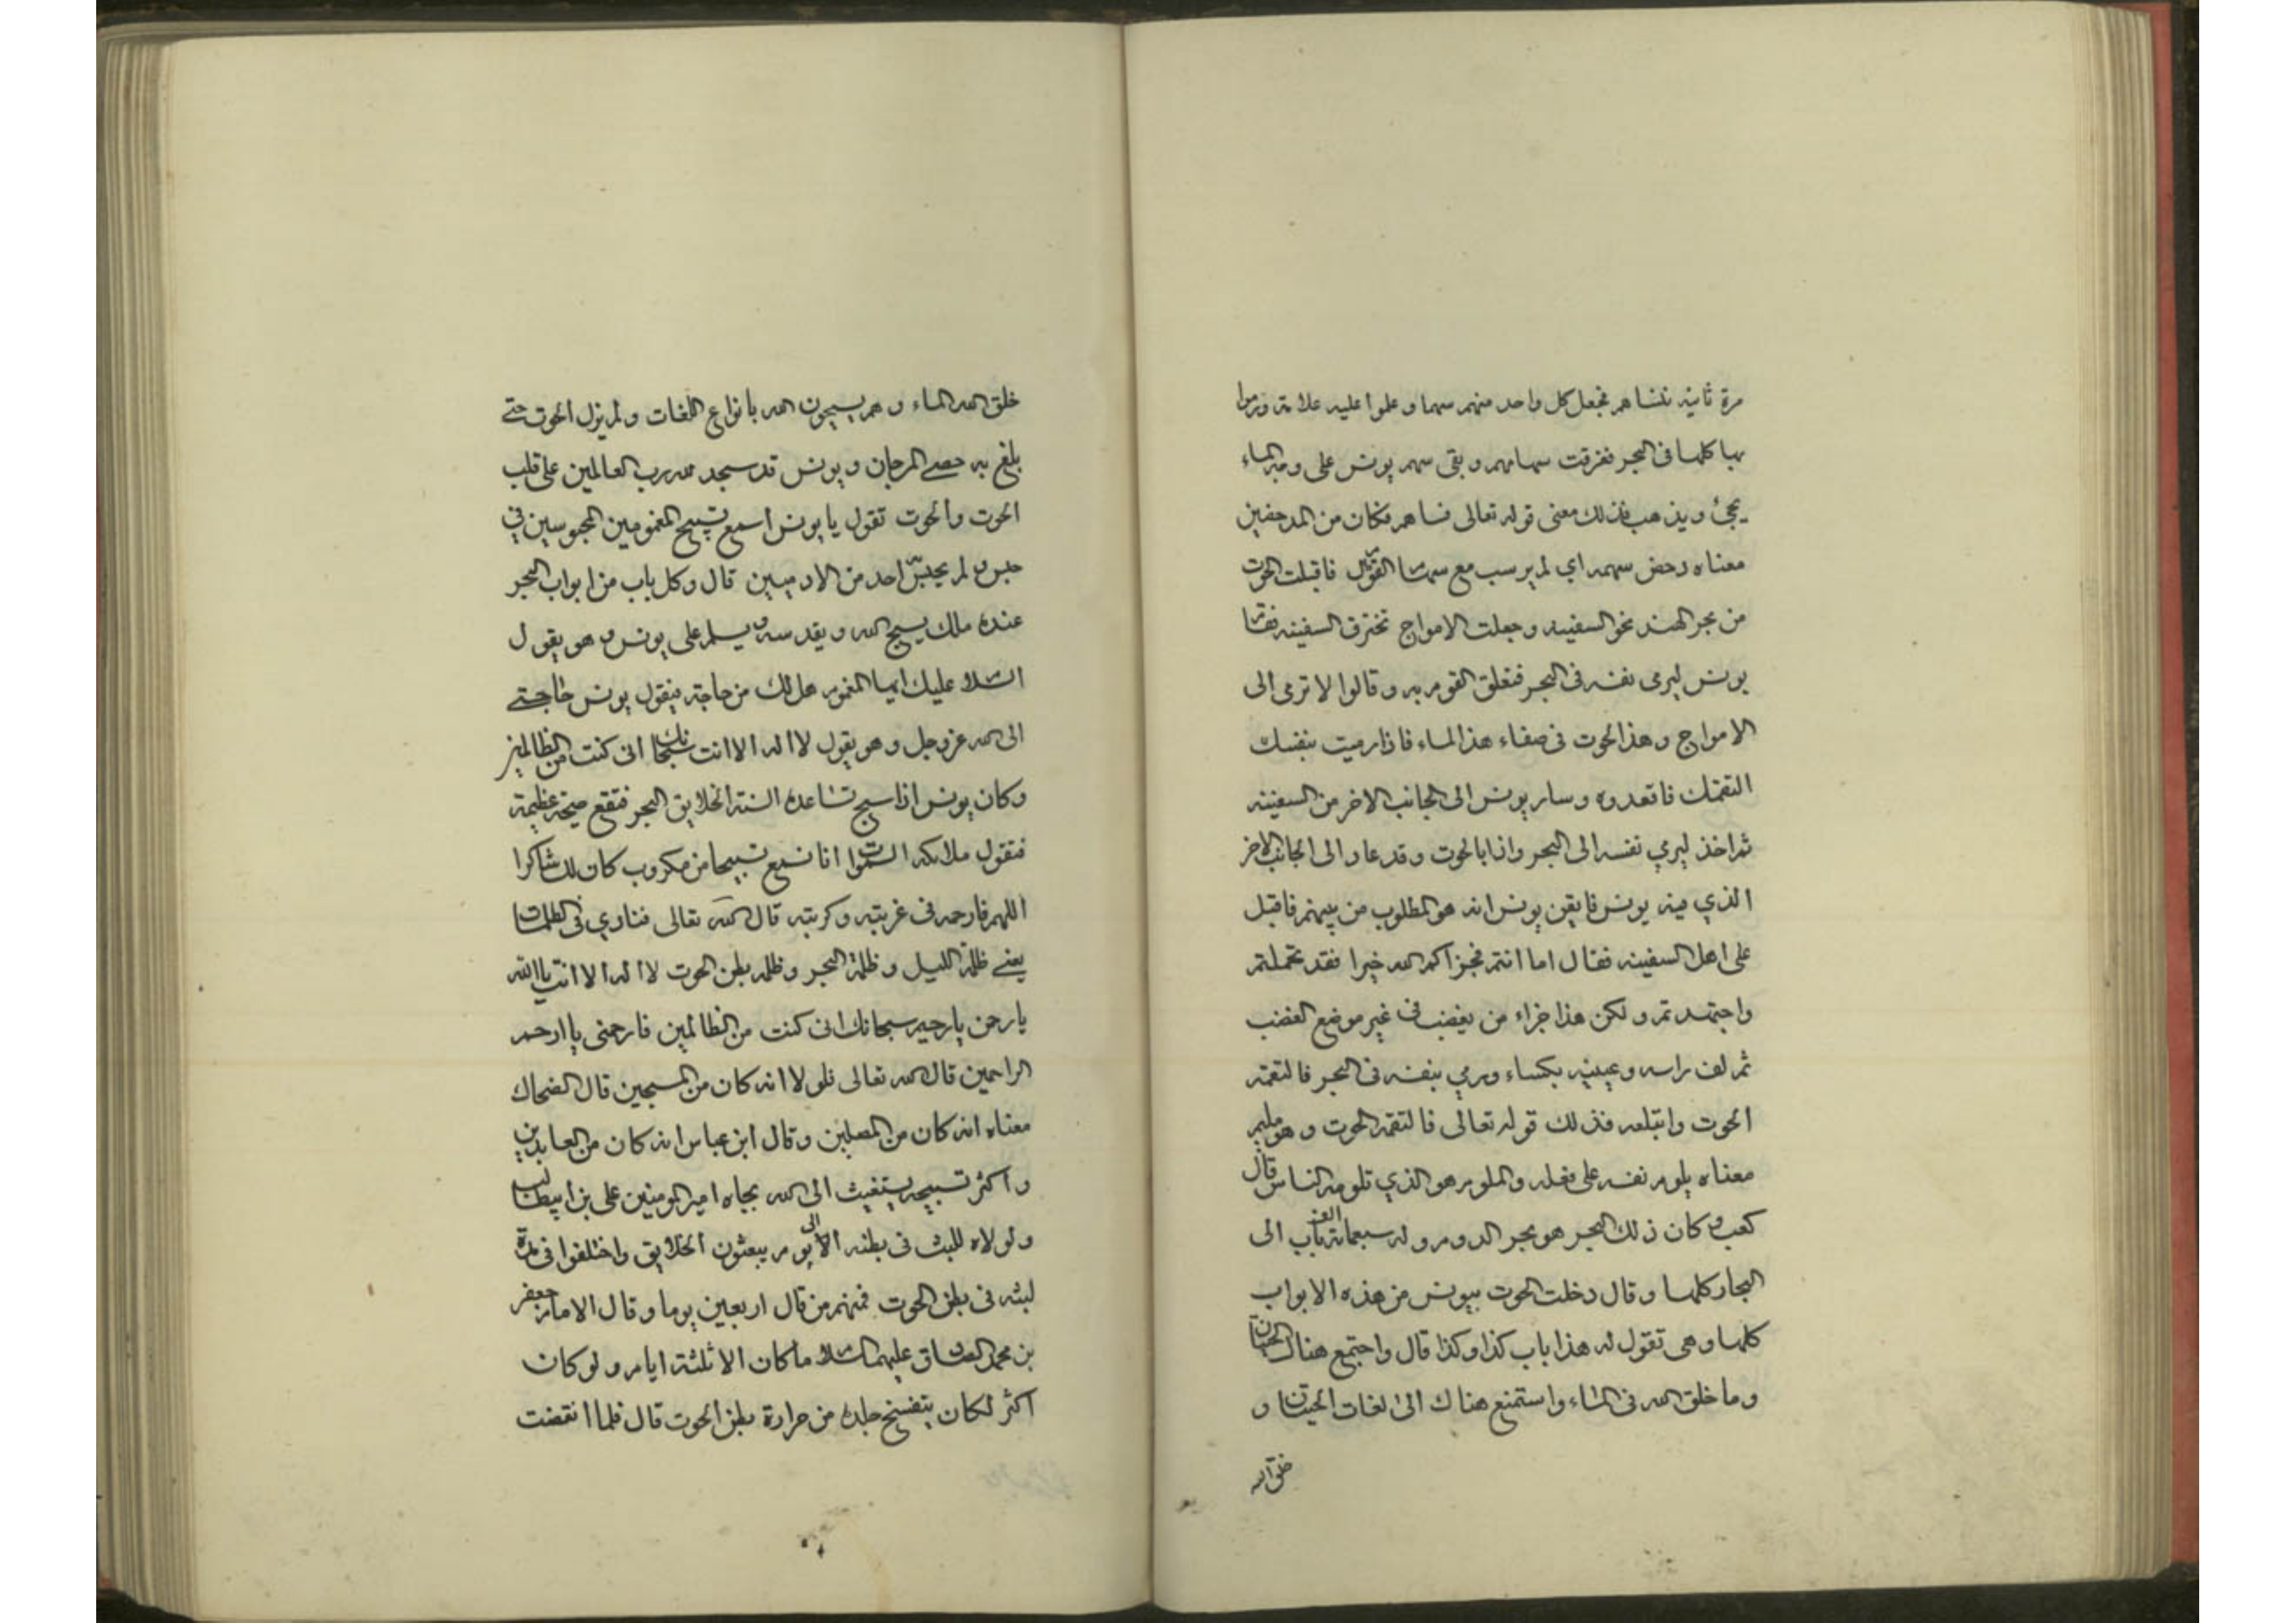 مرة ثانية نتساهم فجعل كل واحد منهم سهما و علموا عليه علامة ورموا
بها كلها في البحر فغرقت سهامهم و بقى سهم يونس على وجه الماء
يجئ و يذهب فذلك معنى قوله تعالى فساهم فكان من المدحضين
معناه دحض سهمه اي لم يرسب مع سهام القوم قال فاقبلت الحوت
من بحر الهند نحو السفينه و جعلت الامواج تخترق السفينه فقام
يونس ليرمى نفسه في البحر فتعلق القوم به و قالوا لا ترمى الى
الامواج و هذا الحوت فى صفاء هذا الماء فاذا رميت بنفسك
التقمك فاقعدوه و سار يونس الى الجانب الاخر من السفينه
ثم اخذ ليرمي نفسه الى البحر واذا بالحوت وقد عاد الى الجانب الاخر
الذي فيه يونس فايقن يونس انه هو المطلوب من بينهم فاقبل
على اهل السفينه فقال اما انتم فجزاكم الله خيرا فقد تحملتم
واجتهدتم و لكن هذا جزاء من يغضب فى غير موضع الغضب
ثم لف راسه و عينيه بكساء ورمي بنفسه فى البحر فالتقمته
الحوت وابتلعه فذلك قوله تعالى فالتقمه الحوت و هو مليم
معناه يلوم نفسه على فعله والملوم هو الذي تلومه الناس قال
كعب و كان ذلك البحر هو بحر الدوم وله سبعمائة الف باب الى
البحار كلها و قال دخلت الحوت بيونس من هذه الابواب
كلها و هى تقول له هذا باب كذا و كذا قال واجتمع هناك الحيتان
وما خلق الله فى الماء واستمتع هناك الى لغات الحيتان و
خلق الله
خلق الله الماء و هم يسبحون الله بانواع اللغات ولم يزل الحوت حتى
بلغ به حصى المرجان و يونس قد سجد لله رب العالمين على قلب
الحوت والحوت تقول يا يونس اسمع تسبيح المغمومين المحبوسين في
حبس لم يحبس احد من الادميين قال و كل باب من ابواب البحر
عنده ملك يسبح الله و يقدسه و يسلم على يونس و هو يقول
السلام عليك ايها المغموم هل لك من حاجة فيقول يونس حاجتى
الى الله عز وجل و هو يقول لا اله الا انت سبحانك انى كنت من الظالمين
وكان يونس اذا سبح تساعده السنة الخلايق البحر فتقع صيحة عظيمة
فتقول ملائكة السموات انا نسمع تسبيحا من مكروب كان لك شاكرا
اللهم فارحمه فى غربته و كربته قال الله تعالى فنادي فى الظلمات
يعنى ظلمة الليل و ظلمة البحر و ظلمة بطن الحوت لا اله الا انت يا الله
يا رحمن يا رحيم سبحانك انى كنت من الظالمين فارحمنى يا ارحم
الراحمين قال الله تعالى فلو لا انه كان من المسبحين قال الضحاك
معناه انه كان من المصلين و قال ابن عباس انه كان من العابدين
و اكثر تسبيحه يستغيث الى الله بجاه امير المومنين على بن ابيطالب
ولولاه للبث فى بطنه الى يوم يبعثون الخلايق واختلفوا فى مدة
لبثه فى بطن الحوت فمنهم من قال اربعين يوما و قال الامام جعفر
بن محمد الصادق عليهما السلام ما كان الا ثلثة ايام و لو كان
اكثر لكان يتفسخ جلده من حرارة بطن الحوت قال فلما انقضت